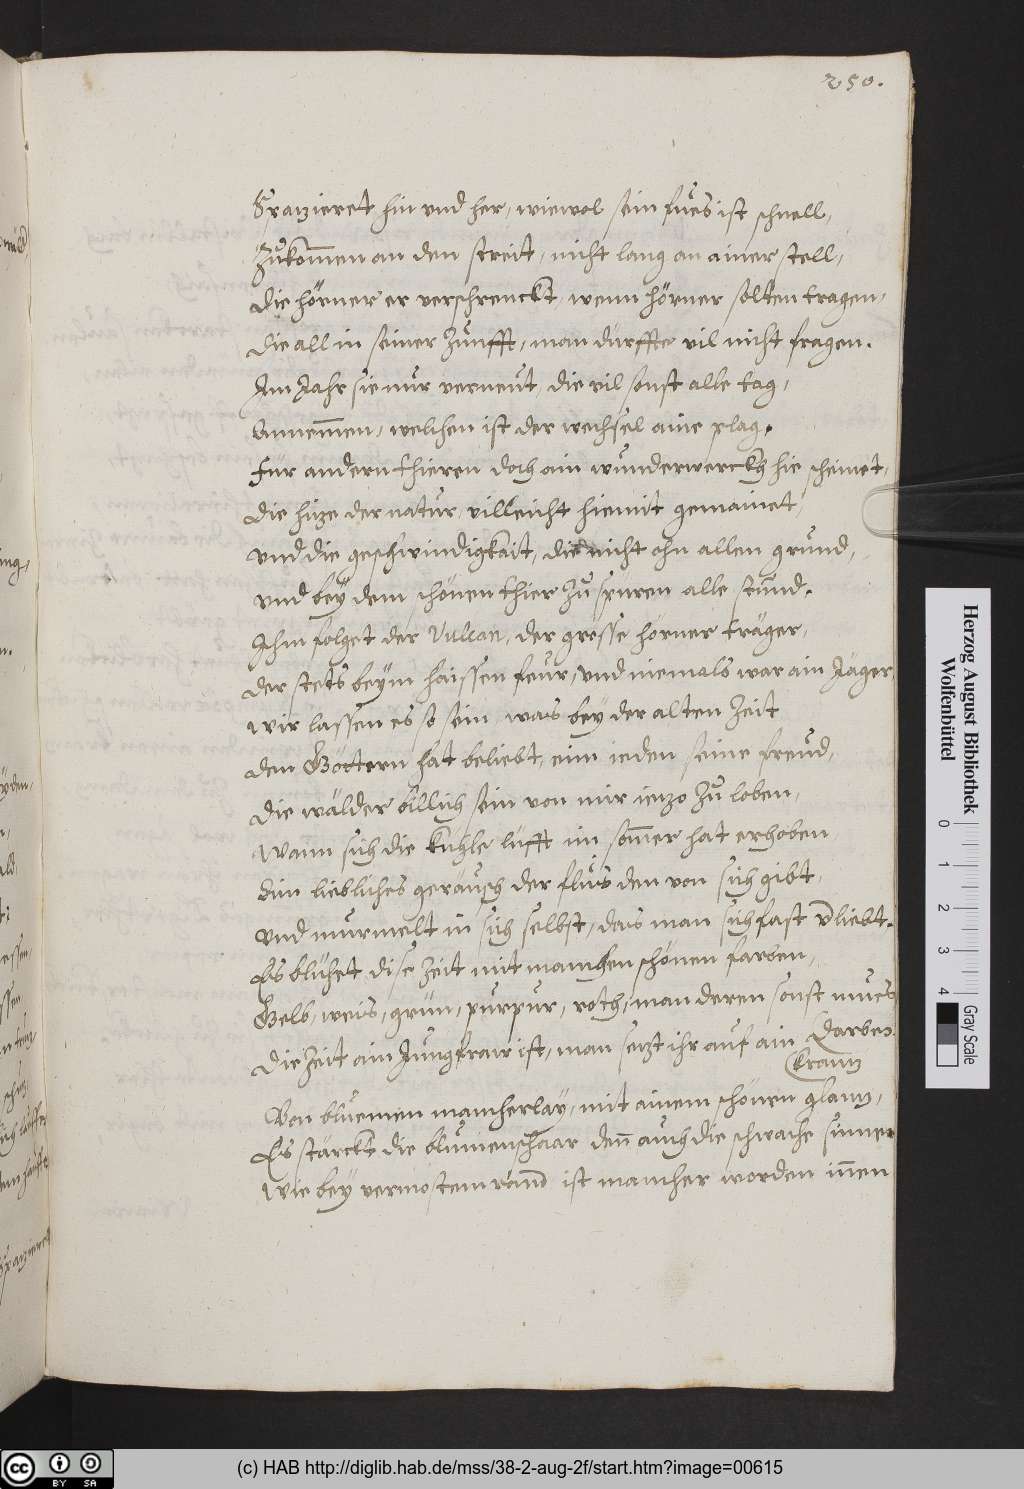 250.
Spazieret hin vnd her, wiewol sein fues ist schnell,
Zukom̄en an den streit, nicht lang an ainer stell,
die hörner er verschrenckt, wenn hörner solten tragen,
die all in seiner Zunfft, man dürffte vil nicht fragen.
Am Jahr sie nur verneut, die vil sonst alle tag,
Annem̄en, welchen ist der wechsel aine plag.
Für andern thieren doch ain wunderwerckh hie scheinet,
die hize der natur, villeicht hiemit gemainet,
vnd die geschwindigkait, die nicht ohn allen grund,
vnd beÿ dem schönen thier zu spüren alle stund.
Ihm folget der Vulcan, der grosse hörner träger,
der stets beÿm haissen feur, vnd niemals war ain Jäger
Wir lassen es so sein, was beÿ der alten Zeit
den Göttern hat beliebt, eim ieden seine freud,
die wälder billich sein von mir iezo zu loben,
Wann sich die kuhle lufft im som̄er hat erhoben
Ein liebliches geräusch der flus den von sich gibt,
vnd murmelt in sich selbst, das man sich fast v̄liebt.
Es blühet dise Zeit mit manchen schönen farben,
Gelb, weis, grün, purpur, roth, man deren sonst mues
Darben.
die Zeit ain Jungfraw ist, man sezt ihr auf ain
Cranz
Von bluemen mancherlaÿ, mit ainem schönen glanz,
Es stärckt die blumenschaar den̄ auch die schwache sinnen
Wie beÿ vermostem rand ist mancher worden in̄en
Spazieret
(c) HAB http://diglib.hab.de/mss/38-2-aug-2f/start.htm?image=00615
Herzog August Bibliothek
Wolfenbüttel
0 1 2 3 4
Gray Scale
cc BY SA